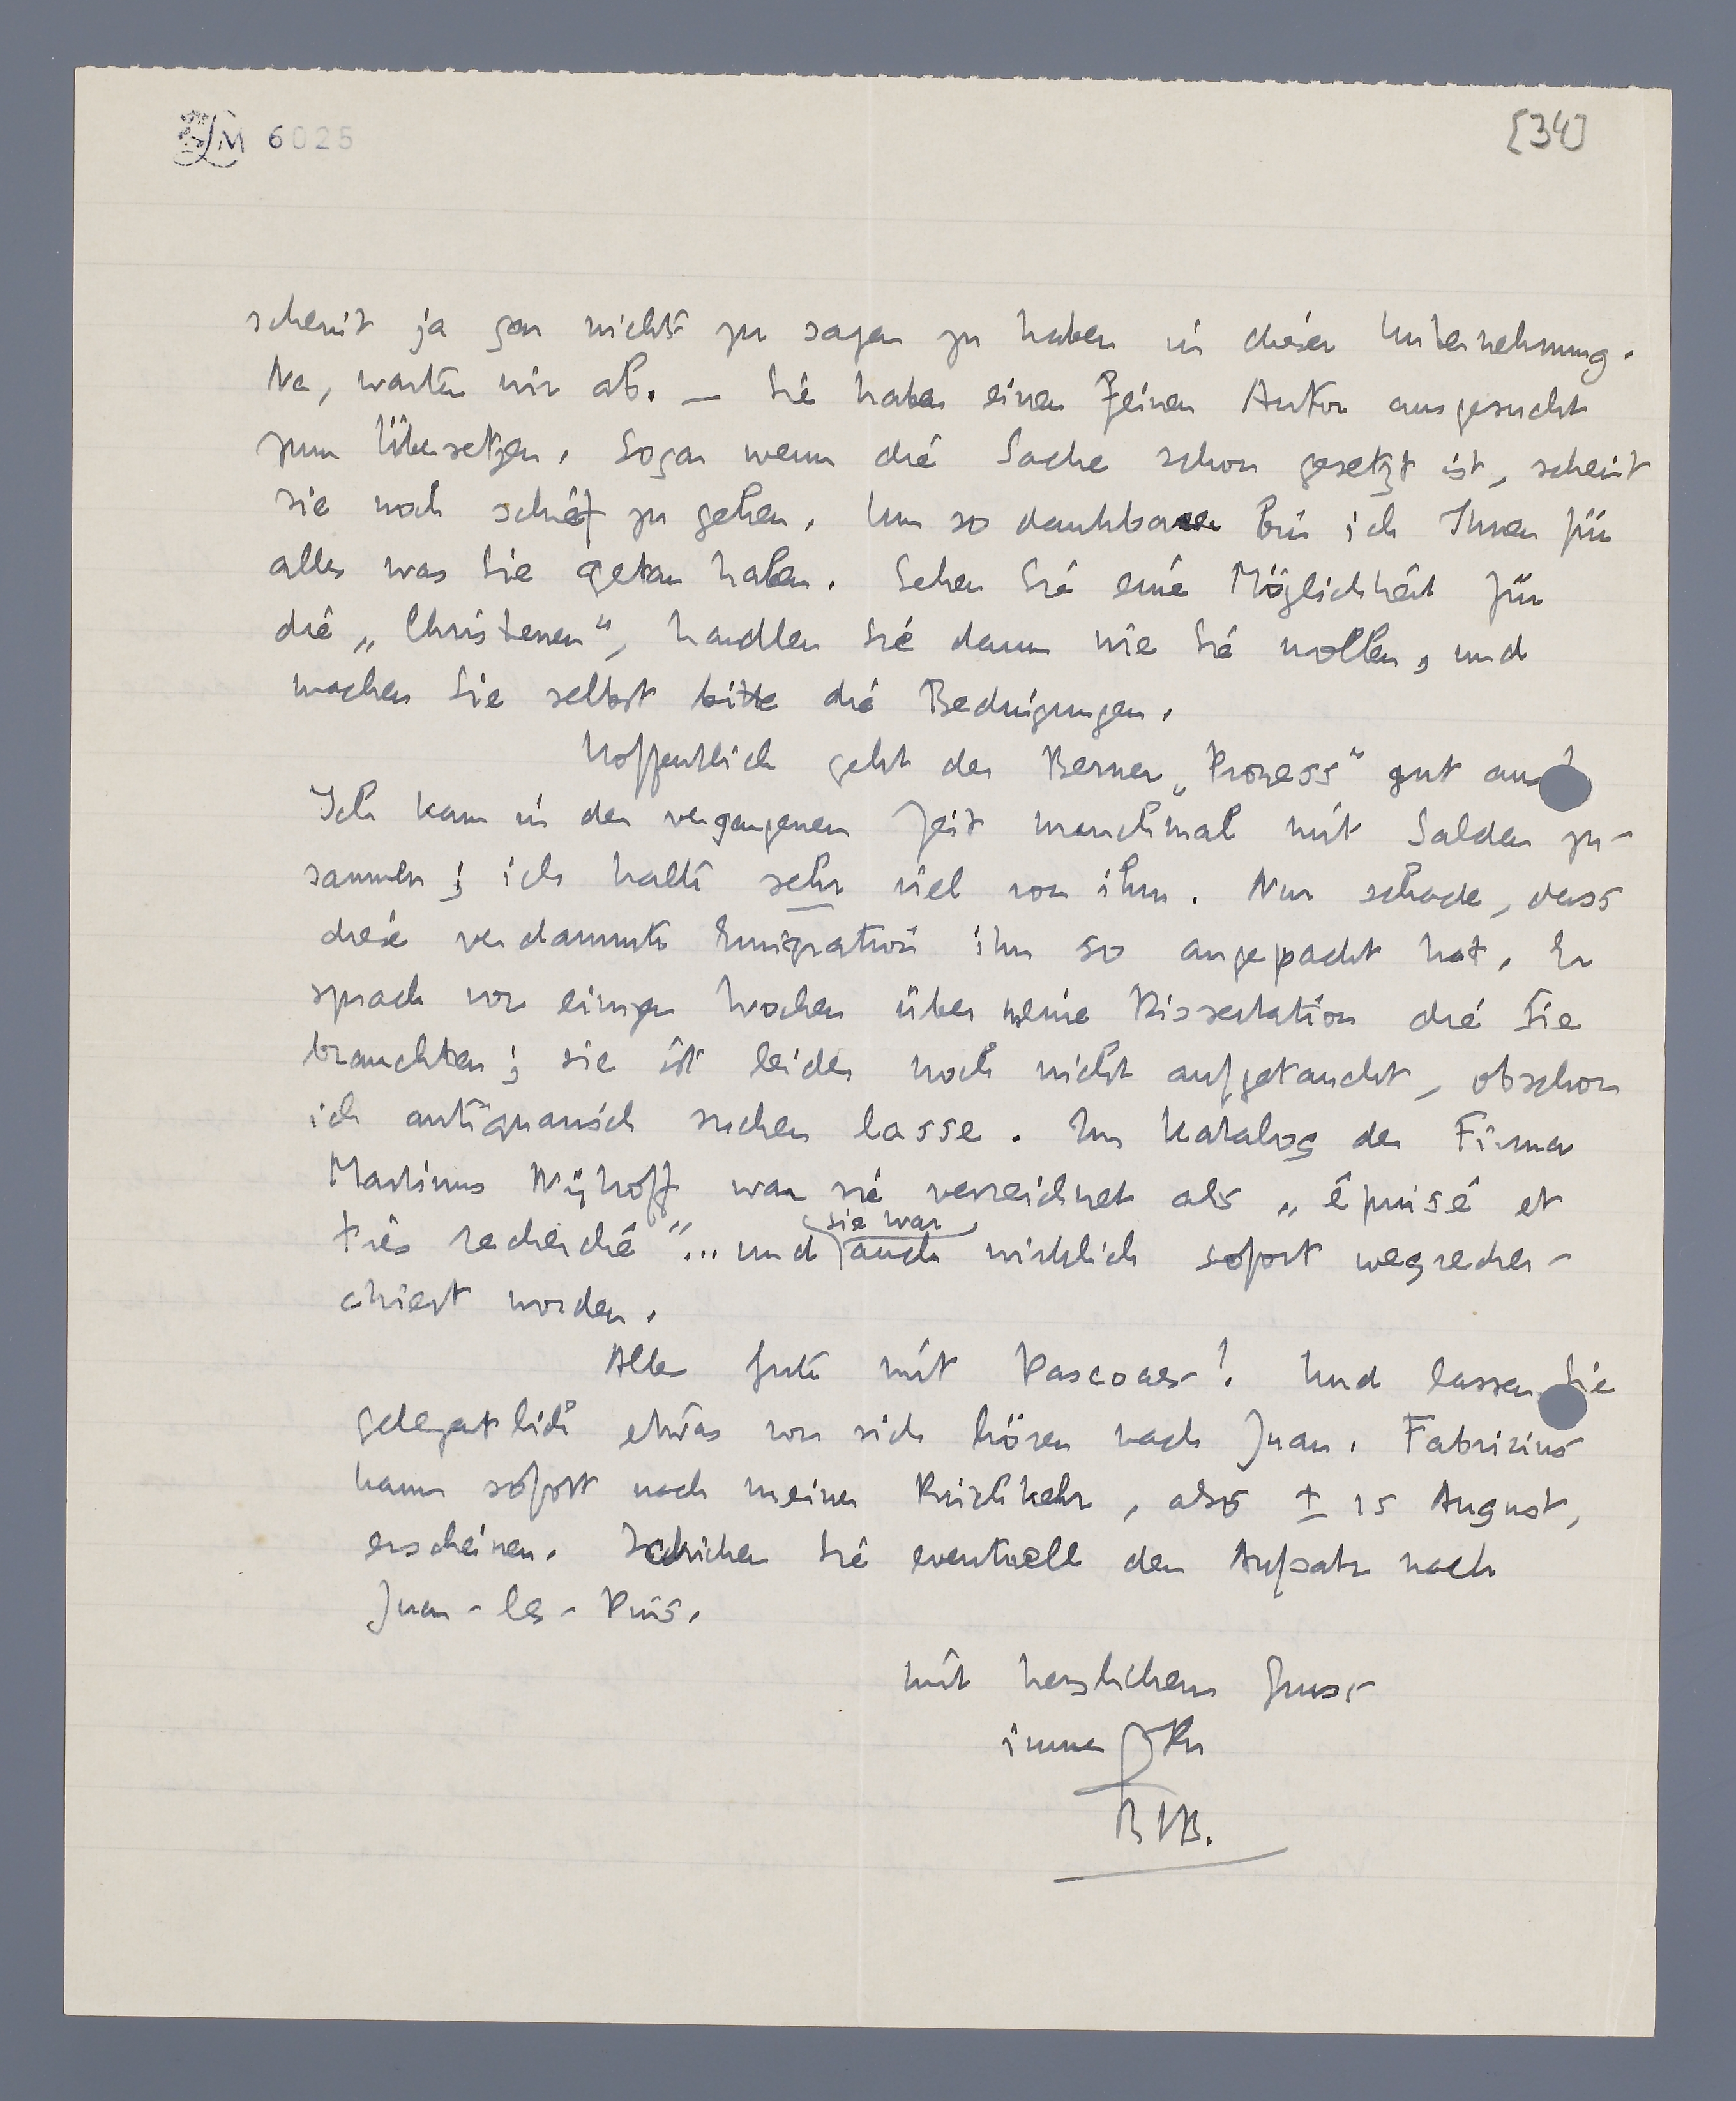 LM 6025
[34]
scheint ja gar nichts zu sagen zu haben in dieser Unternehmung.
Na, warten wir ab. — Sie haben einen feinen Autor ausgesucht
zum Übersetzen. Sogar wenn die Sache schon gesetzt ist, scheint
sie noch schief zu gehen. Um so dankbarer bin ich Ihnen für
alles was Sie getan haben. Sehen Sie eine Möglichkeit für
die „Christenen", handlen Sie dann wie Sie wollen, und
machen Sie selbst bitte die Bedingungen.
Hoffentlich geht der Berner „Prozess" gut aus!
Ich kam in der vergangenen Zeit manchmal mit Salden zu-
sammen; ich halte sehr viel von ihm. Nur schade, dass
diese verdammte Emigration ihn so angepackt hat. Er
sprach vor einigen Wochen über meine Dissertation die Sie
brauchten; sie ist leider noch nicht aufgetaucht, obschon
ich antiquarisch suchen lasse. Im Katalog der Firma
Martinus Nijhoff war sie verzeichnet als „épuisé et
très recherché"... und (sie war) auch wirklich sofort wegrecher-
chiert worden.
Alles Gute mit Pascoaes! Und lassen Sie
gelegentlich etwas von sich hören nach Juan. Fabrizius
kann sofort nach meiner Rückkehr, also ± 15 August,
erscheinen. Schicken Sie eventuell den Aufsatz nach
Juan-les-Pins.
Mit herzlichem Gruss
immer Ihr